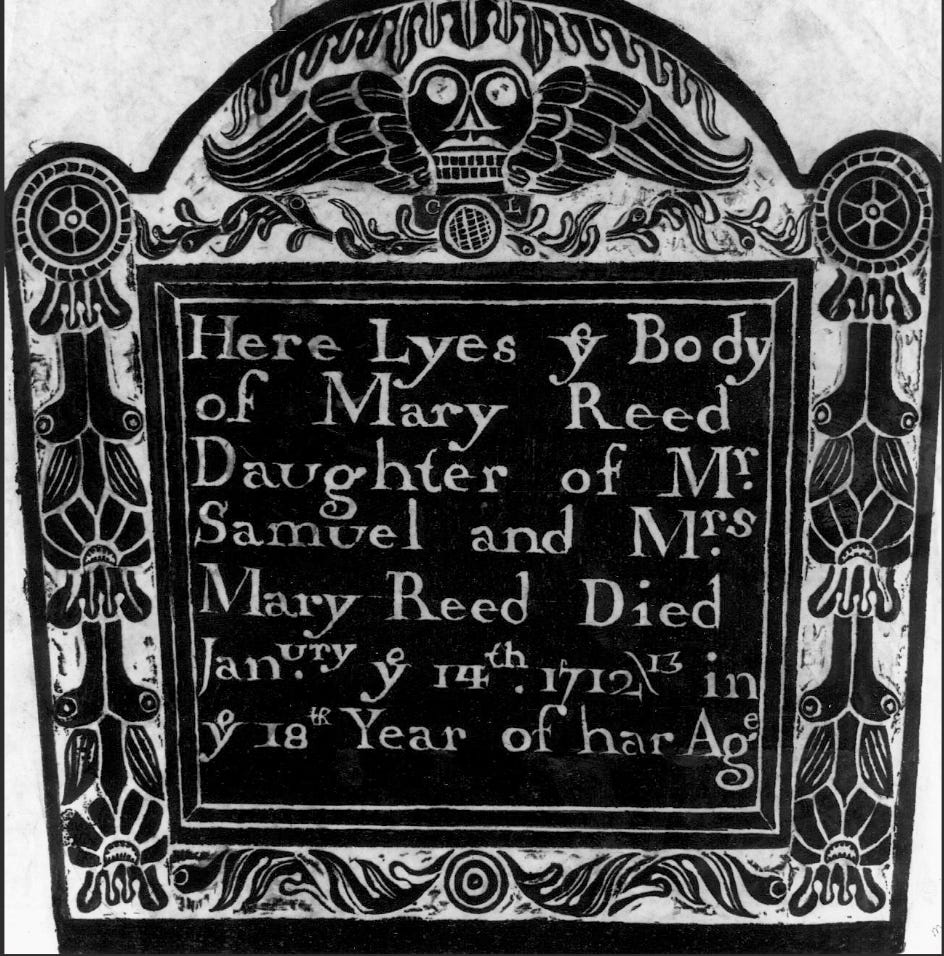 C L
Here Lyes yͤ Body
of Mary Reed
Daughter of Mʳ.
Samuel and Mʳ.ˢ
Mary Reed Died
Jan.ᵘʳʸ yͤ 14ᵗʰ. 1712\13 in
yͤ 18ᵗʰ Year of har Agᵉ